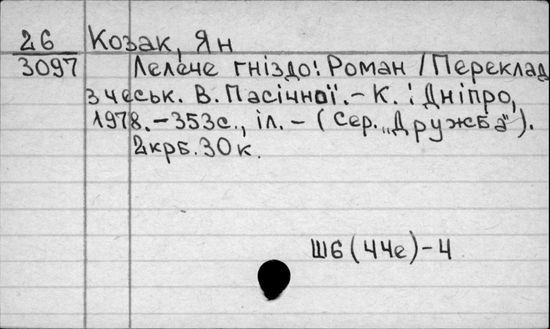 26 Козак, Ян
3097 Лелече гніздо: Роман / Переклад
з чеськ. В. Пасічної. – К. : Дніпро,
1978. – 353с., іл. – (Сер. „Дружба").
2крб. 30к.
Ш6(44е)-4